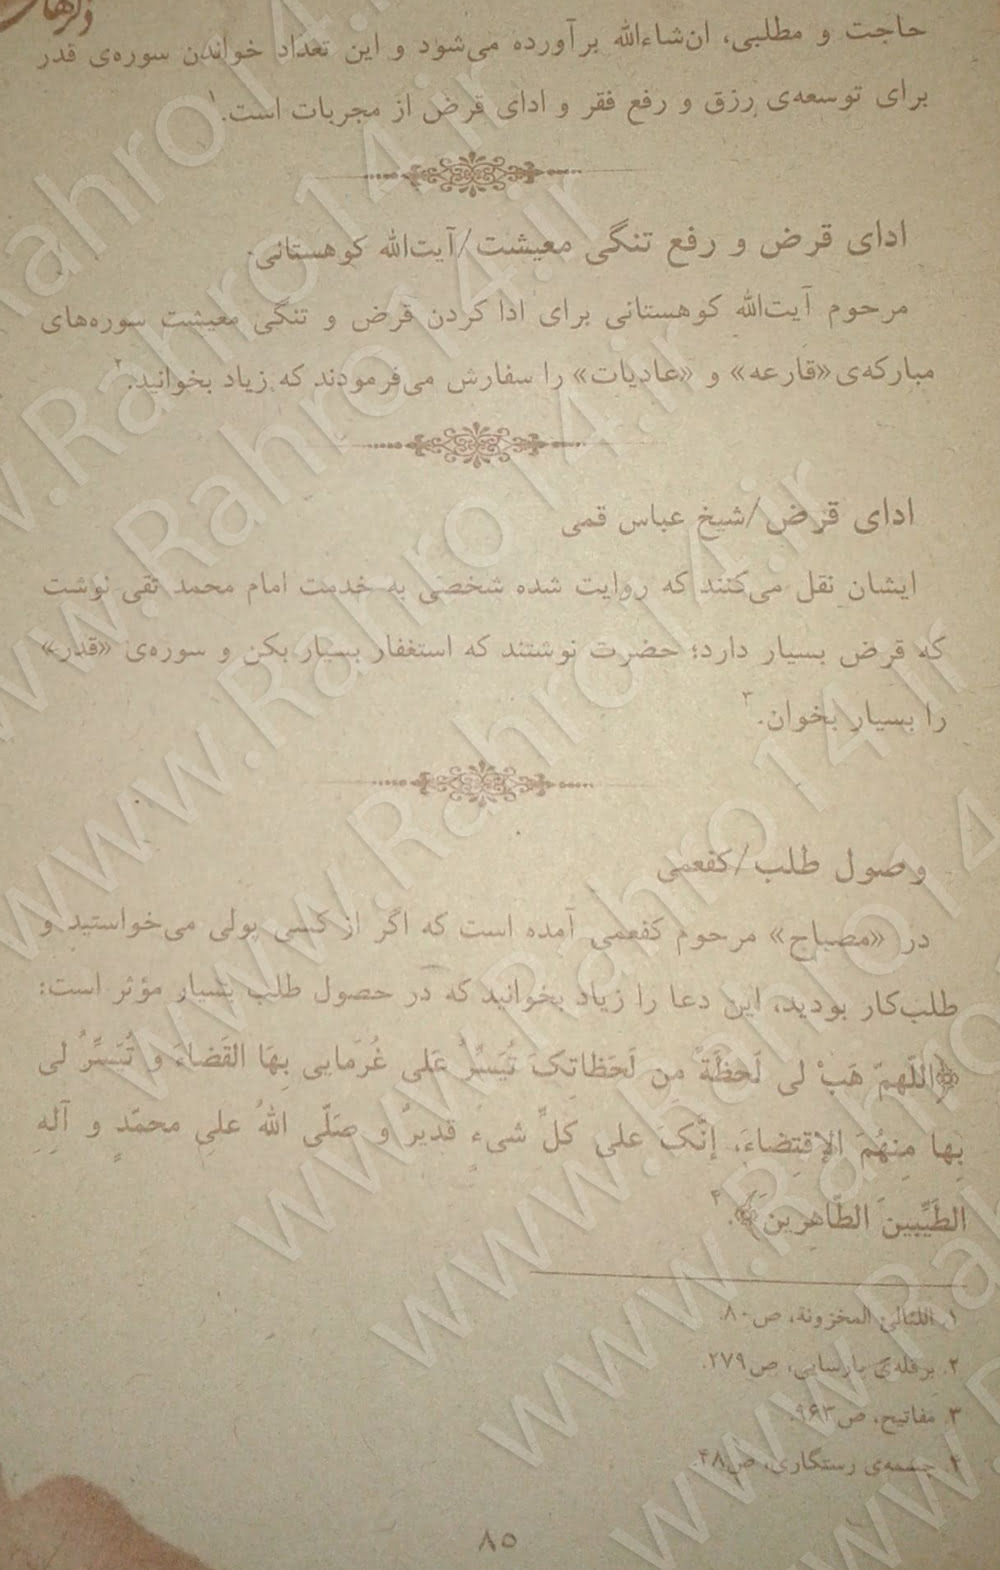 حاجت و مطلبی، ان‌شاءالله برآورده می‌شود و این تعداد خواندن سوره‌ی قدر
برای توسعه‌ی رزق و رفع فقر و ادای قرض از مجربات است.۱
ادای قرض و رفع تنگی معیشت/آیت‌الله کوهستانی
مرحوم آیت‌الله کوهستانی برای ادا کردن قرض و تنگی معیشت سوره‌های
مبارکه‌ی «قارعه» و «عادیات» را سفارش می‌فرمودند که زیاد بخوانید.۲
ادای قرض/شیخ عباس قمی
ایشان نقل می‌کنند که روایت شده شخصی به خدمت امام محمد تقی نوشت
که قرض بسیار دارد؛ حضرت نوشتند که استغفار بسیار بکن و سوره‌ی «قدر»
را بسیار بخوان.۳
وصول طلب/کفعمی
در «مصباح» مرحوم کفعمی آمده است که اگر از کسی پولی می‌خواستید و
طلب‌کار بودید، این دعا را زیاد بخوانید که در حصول طلب بسیار مؤثر است:
﴿اللّهمّ هَبْ لی لَحظَةً مِن لَحَظاتِکَ تُیَسِّرُ عَلی غُرَمایی بِهَا القَضاءَ و تُیَسِّرُ لی
بِها مِنهُمَ الإقتِضاءَ، إنَّکَ علی کلِّ شیءٍ قدیرٌ و صَلّی اللهُ علی محمّدٍ و آلِهِ
الطَیِّبینَ الطّاهِرینَ﴾.۴
۱. اللئالئ المخزونة، ص۸۰.
۲. برقله‌ی پارسایی، ص۲۷۹.
۳. مفاتیح، ص۹۶۳.
۴. چشمه‌ی رستگاری، ص۴۸.
۸۵
www.Rahro14.ir